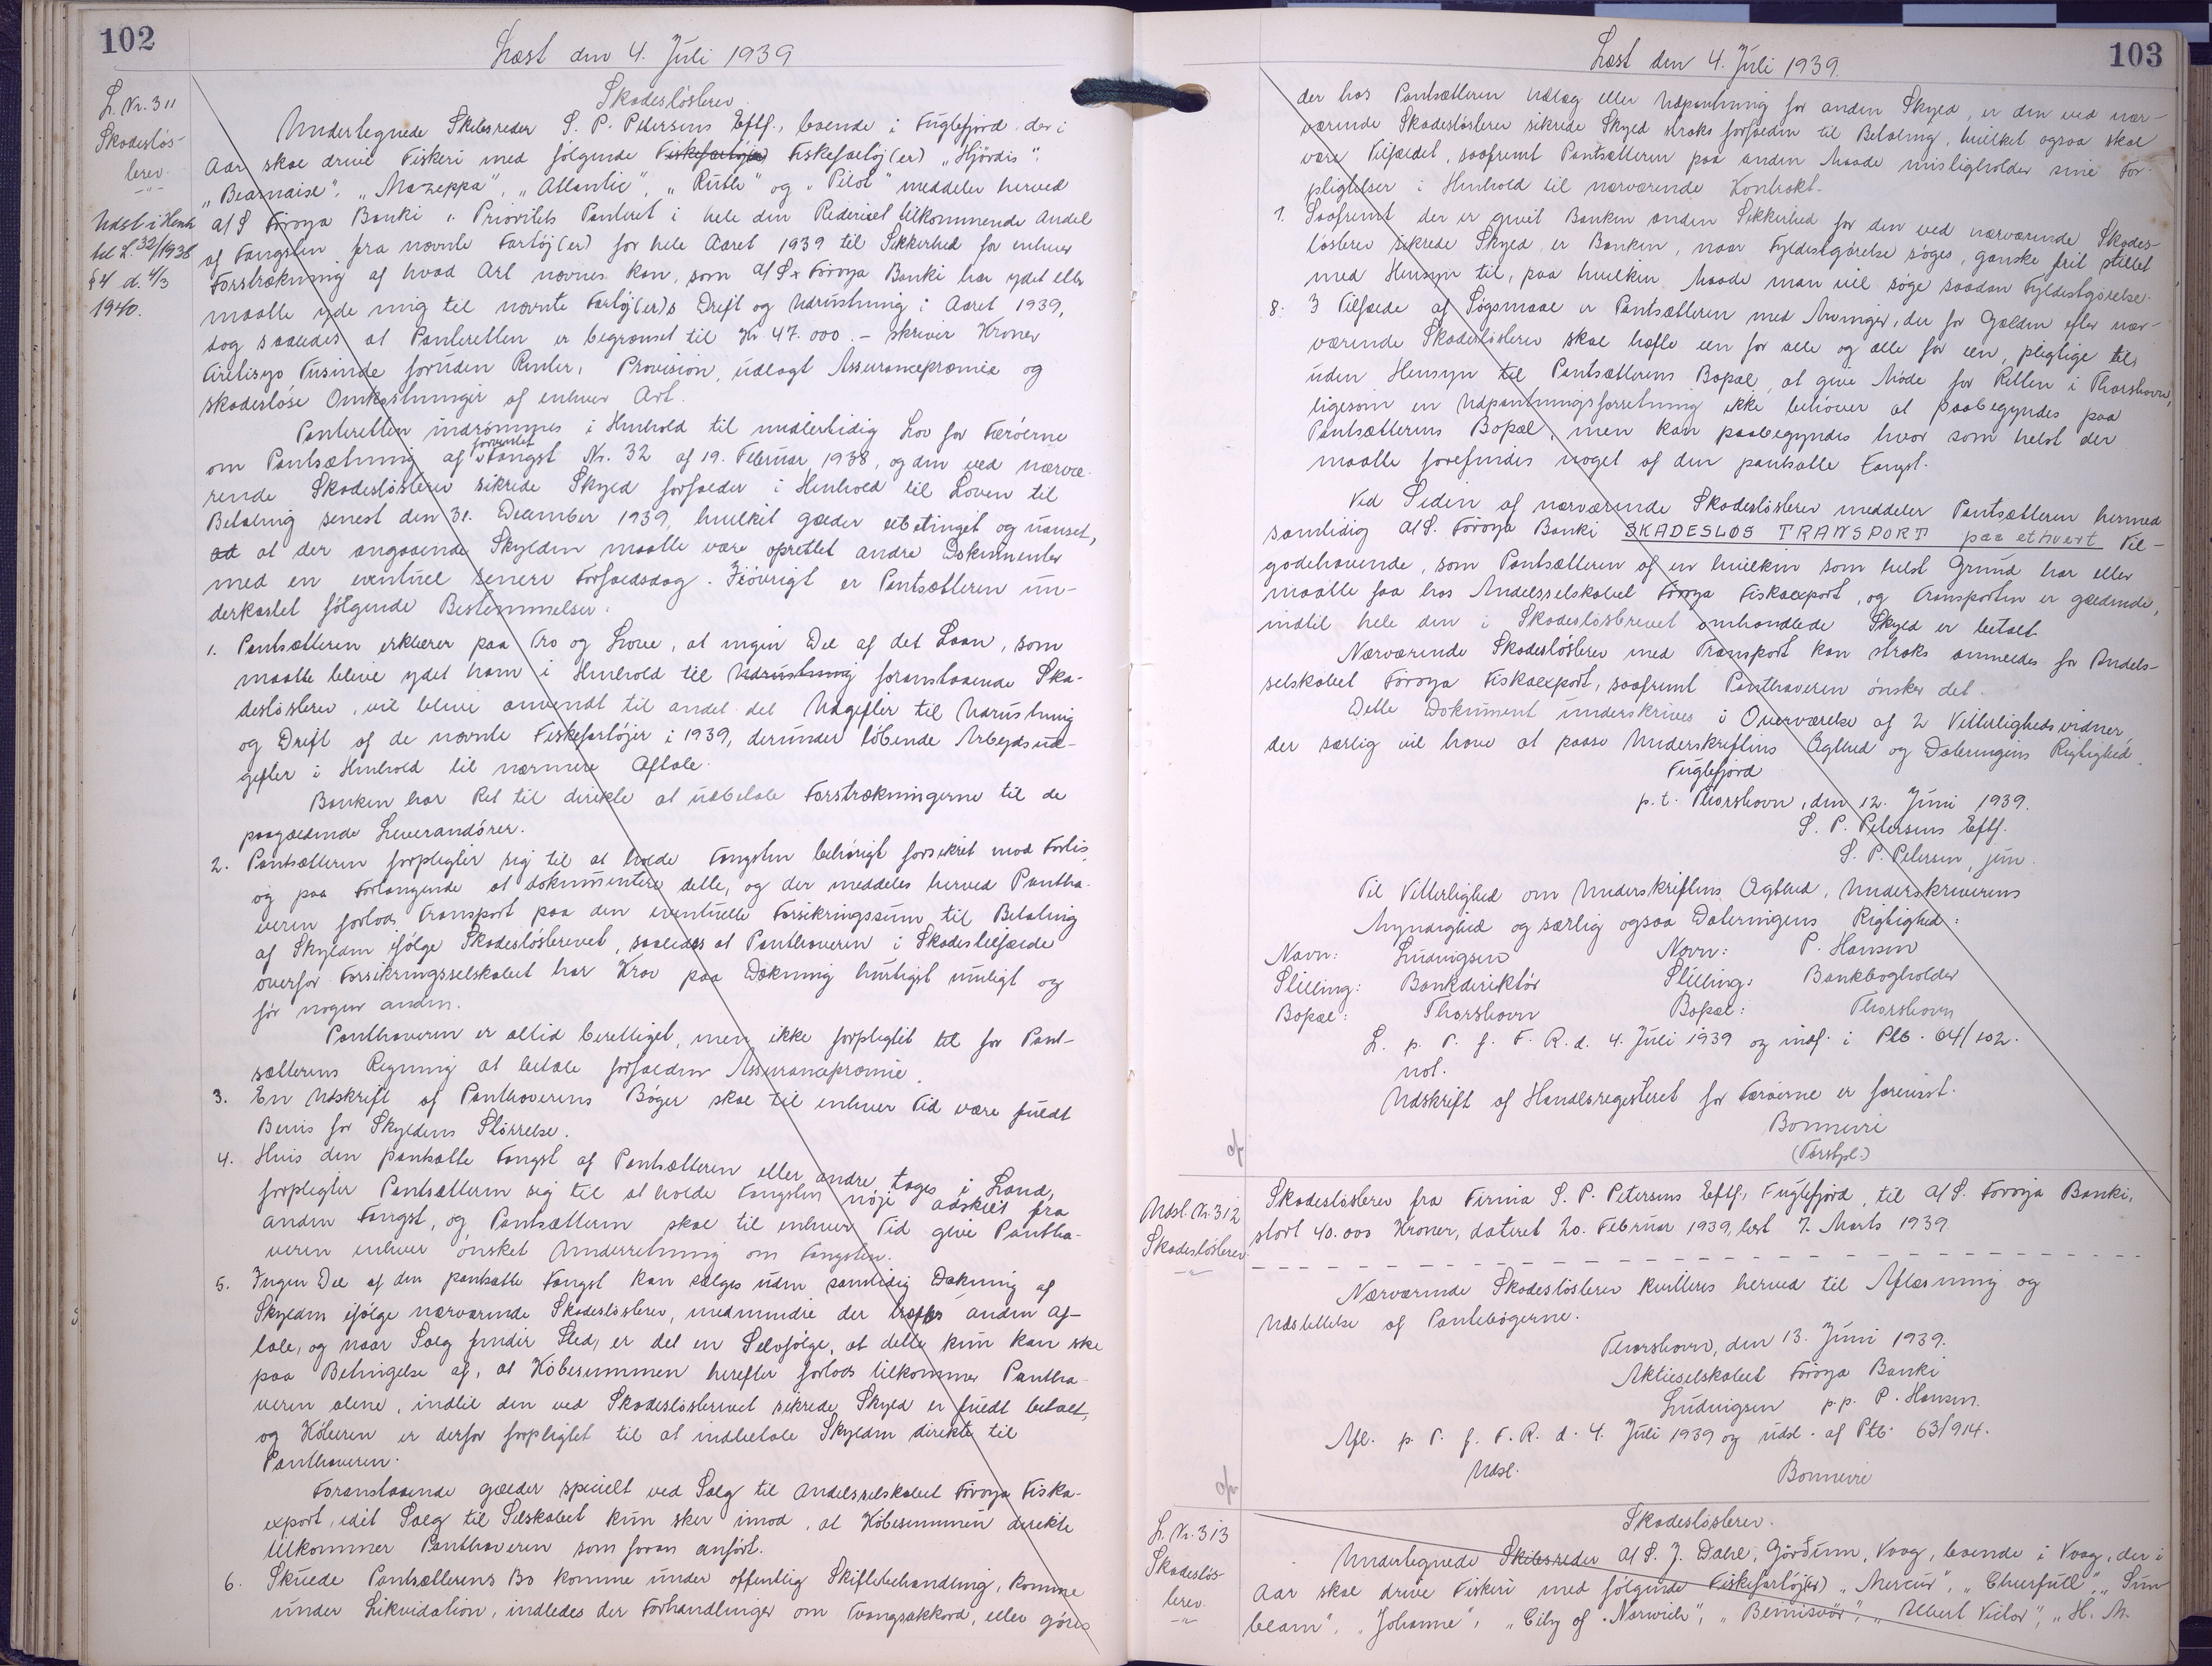 102
Læst den 4. Juli 1939
L. Nr. 311
Skadesløs-
brev.
Udst i Henh
til L. 32/1938
§ 4 d. 4/3
1940.
Skadesløsbrev
Undertegnede Skibsreder S. P. Petersens Eftf., boende i Fuglefjord, der i
Aar skal drive Fiskeri med følgende Fiskefartøj(er) Fiskefartøj(er) „Hjørdis",
„Bearnaise", „Mazeppa", „Atlantic", „Ruth" og „Pilot" meddeler herved
A/S Føroya Banki 1. Prioritets Panteret i hele den Rederiet tilkommende Andel
af Fangsten fra nævnte Fartøj(er) for hele Aaret 1939 til Sikkerhed for enhver
Forstrækning af hvad Art nævnes kan, som A/S. Føroya Banki har ydet eller
maatte yde mig til nævnte Fartøj(er)s Drift og Udrustning i Aaret 1939,
dog saaledes at Panteretten er begrænset til Kr 47.000.- skriver Kroner
Firetisyv Tusinde foruden Renter, Provision, udlagt Assurancepræmie og
skadesløse Omkostninger af enhver Art.
Panteretten indrømmes i Henhold til midlertidig Lov for Færøerne
om Pantsætning af forventet Fangst Nr. 32 af 19. Februar 1938, og den ved nærvæ-
rende Skadesløsbrev sikrede Skyld forfalder i Henhold til Loven til
Betaling senest den 31. December 1939, hvilket gælder ubetinget og uanset,
ad at der angaaende Skylden maatte være oprettet andre Dokumenter
med en eventuel senere Forfaldsdag. Iøvrigt er Pantsætteren un-
derkastet følgende Bestemmelser:
1. Pantsætteren erklærer paa Tro og Love, at ingen Del af det Laan, som
maatte blive ydet ham i Henhold til Udrustning foranstaaende Ska-
desløsbrev, vil blive anvendt til andet det Udgifter til Udrustning
og Drift af de nævnte Fiskefartøjer i 1939, derunder løbende Arbejdsud-
gifter i Henhold til nærmere Aftale.
Banken har Ret til direkte at udbetale Forstrækningerne til de
paagældende Leverandører.
2. Pantsætteren forpligter sig til at holde Fangsten behørigt forsikret mod Forlis,
og paa Forlangende at dokumentere dette, og der meddeles herved Pantha-
veren forlods Transport paa den eventuelle Forsikringssum til Betaling
af Skylden ifølge Skadesløsbrevet, saaledes at Panthaveren i Skadestilfælde
overfor Forsikringsselskabet har Krav paa Dækning hurtigst muligt og
før nogen anden.
Panthaveren er altid berettiget, men ikke forpligtet til for Pant-
sætterens Regning at betale forfalden Assurancepræmie.
3. En Udskrift af Panthaverens Bøger skal til enhver Tid være fuldt
Bevis for Skyldens Størrelse.
4. Hvis den pantsatte Fangst af Pantsætteren eller andre tages i Land,
forpligter Pantsætteren sig til at holde Fangsten nøje adskilt fra
anden Fangst, og Pantsætteren skal til enhver Tid give Pantha-
veren enhver ønsket Underretning om Fangsten.
5. Ingen Del af den pantsatte Fangst kan sælges uden samtidig Dækning af
Skylden ifølge nærværende Skadesløsbrev, medmindre der træffes anden Af-
tale, og naar Salg finder Sted, er det en Selvfølge, at dette kun kan ske
paa Betingelse af, at Købesummen herefter forlods tilkommer Pantha-
veren alene, indtil den ved Skadesløsbrevet sikrede Skyld er fuldt betalt,
og Køberen er derfor forpligtet til at indbetale Skylden direkte til
Panthaveren.
Foranstaaende gælder specielt ved Salg til Andelsselskabet Føroya Fiska-
export, idet Salg til Selskabet kun sker imod, at Købesummen direkte
tilkommer Panthaveren som foran anført.
6. Skulde Pantsætterens Bo komme under offentlig Skiftebehandling, komme
under Likvidation, indledes der Forhandlinger om Tvangsakkord, eller gøres
103
Læst den 4. Juli 1939.
der hos Pantsætteren Udlæg eller Udpantning for anden Skyld, er den ved nær-
værende Skadesløsbrev sikrede Skyld straks forfalden til Betaling, hvilket ogsaa skal
være Tilfældet, saafremt Pantsætteren paa anden Maade misligholder sine For-
pligtelser i Henhold til nærværende Kontrakt.
7. Saafremt der er givet Banken anden Sikkerhed for den ved nærværende Skades-
løsbrev sikrede Skyld, er Banken, naar Fyldestgørelse søges, ganske frit stillet
med Hensyn til, paa hvilken Maade man vil søge saadan Fyldestgørelse.
8. I Tilfælde af Søgsmaal er Pantsætteren med Arvinger, der for Gælden efter nær-
værende Skadesløsbrev skal hæfte een for alle og alle for een, pligtige til,
uden Hensyn til Pantsætterens Bopæl, at give Møde for Retten i Thorshavn,
ligesom en Udpantningsforretning ikke behøver at paabegyndes paa
Pantsætterens Bopæl, men kan paabegyndes hvor som helst der
maatte forefindes noget af den pantsatte Fangst.
Ved Siden af nærværende Skadesløsbrev meddeler Pantsætteren hermed
samtidig A/S. Føroya Banki SKADESLØS TRANSPORT paa ethvert Til-
godehavende, som Pantsætteren af en hvilken som helst Grund har eller
maatte faa hos Andelsselskabet Føroya Fiskaexport, og Transporten er gældende,
indtil hele den i Skadesløsbrevet omhandlede Skyld er betalt.
Nærværende Skadesløsbrev med Transport kan straks anmeldes for Andels-
selskabet Føroya Fiskaexport, saafremt Panthaveren ønsker det.
Dette Dokument underskrives i Overværelse af 2 Vitterlighedsvidner,
der særlig vil have at paase Underskriftens Ægthed og Dateringens Rigtighed.
Fuglefjord
p.t. Thorshavn, den 12. Juni 1939.
S. P. Petersens Eftf.
S. P. Petersen, jun.
Til Vitterlighed om Underskriftens Ægthed, Underskriverens
Myndighed og særlig ogsaa Dateringens Rigtighed:
Navn: Ludvigsen Navn: P. Hansen
Stilling: Bankdirektør Stilling: Bankbogholder
Bopæl: Thorshavn Bopæl: Thorshavn
L. p. T. f. F. R. d. 4. Juli 1939 og indf. i Ptb. 64/102.
not.
Udskrift af Handelsregisteret for Færøerne er forevist.
Bonnevie
(Forstpl.)
Udsl. Nr. 312
Skadesløsbrev
Skadesløsbrev fra Firma S. P. Petersens Eftf., Fuglefjord, til A/S. Føroya Banki,
stort 40.000 Kroner, dateret 20. Februar 1939, læst 7. Marts 1939.
Nærværende Skadesløsbrev kvitteres herved til Aflæsning og
Udslettelse af Pantebøgerne.
Thorshavn, den 13. Juni 1939.
Aktieselskabet Føroya Banki
Ludvigsen p.p. P. Hansen.
Afl. p. T. f. F. R. d. 4. Juli 1939 og udsl. af Ptb. 63/914.
Udsl. Bonnevie
L. Nr. 313
Skadesløs-
brev.
Skadesløsbrev.
Undertegnede Skibsreder A/S. J. Dahl, Gørðum, Vaag, boende i Vaag, der i
Aar skal drive Fiskeri med følgende Fiskefartøj(er) „Mercur", „Cheerfull", „Sun
beam", „Johanne", „City of Norwich", „Beinisvør", „Albert Victor", „H. M.